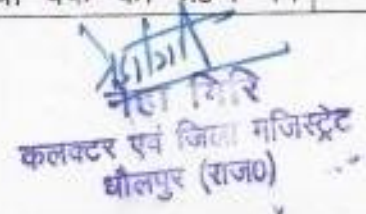 नेहा गिरि
कलक्टर एवं जिला मजिस्ट्रेट
धौलपुर (राज0)